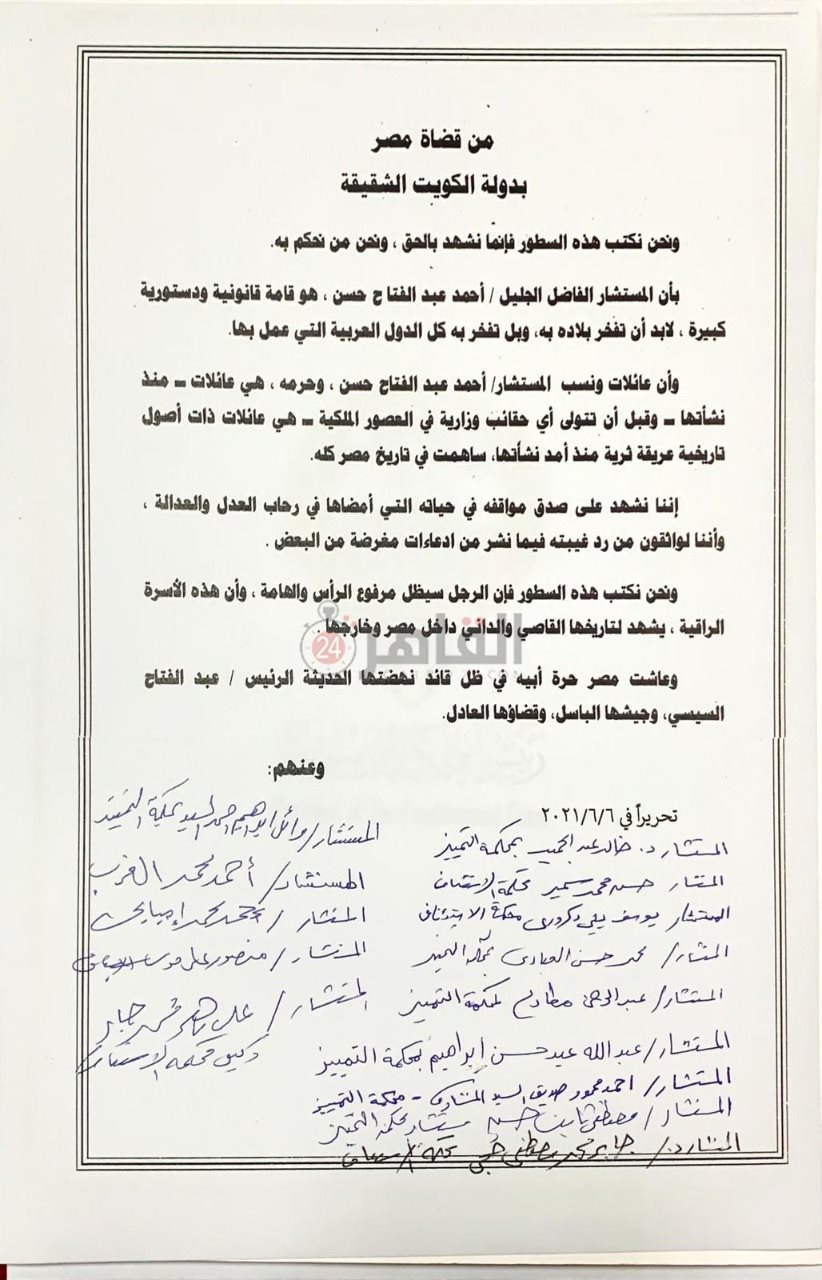 من قضاة مصر
بدولة الكويت الشقيقة
ونحن نكتب هذه السطور فإنما نشهد بالحق ، ونحن من نحكم به.
بأن المستشار الفاضل الجليل / أحمد عبد الفتاح حسن ، هو قامة قانونية ودستورية
كبيرة ، لابد أن تفخر بلاده به، وبل تفخر به كل الدول العربية التي عمل بها.
وأن عائلات ونسب المستشار/ أحمد عبد الفتاح حسن ، وحرمه ، هي عائلات ــ منذ
نشأتها ــ وقبل أن تتولى أي حقائب وزارية في العصور الملكية ــ هي عائلات ذات أصول
تاريخية عريقة ثرية منذ أمد نشأتها، ساهمت في تاريخ مصر كله.
إننا نشهد على صدق مواقفه في حياته التي أمضاها في رحاب العدل والعدالة ،
وأننا لواثقون من رد غيبته فيما نشر من ادعاءات مغرضة من البعض .
ونحن نكتب هذه السطور فإن الرجل سيظل مرفوع الرأس والهامة ، وأن هذه الأسرة
الراقية ، يشهد لتاريخها القاصي والداني داخل مصر وخارجها .
القاهرة 24
وعاشت مصر حرة أبيه في ظل قائد نهضتها الحديثة الرئيس / عبد الفتاح
السيسي، وجيشها الباسل، وقضاؤها العادل.
وعنهم:
تحريراً في ٢٠٢١/٦/٦
المستشار د. خالد عبد المجيد بمحكمة التمييز
المستشار حسن محمد سمير محكمة الاستئناف
المستشار يوسف محكمة الاستئناف
المستشار/ محمد حسن العبادى بمحكمة التمييز
المستشار/ عبدالرحمن مطاوع بمحكمة التمييز
المستشار/ عبدالله عيد حسن ابراهيم بمحكمة التمييز
المستشار/ احمد محمود صديق السيد - محكمة التمييز
المستشار/ مصطفى ثابت مستشار بمحكمة التمييز
المستشار د./ جابر محمد مصطفى محكمة الاستئناف
المستشار/ وائل ابراهيم احمد السيد بمحكمة التمييز
المستشار/ أحمد محمد
المستشار / محمد محمد
المستشار/ منصور على
المستشار / على جابر
وكيل محكمة الاستئناف